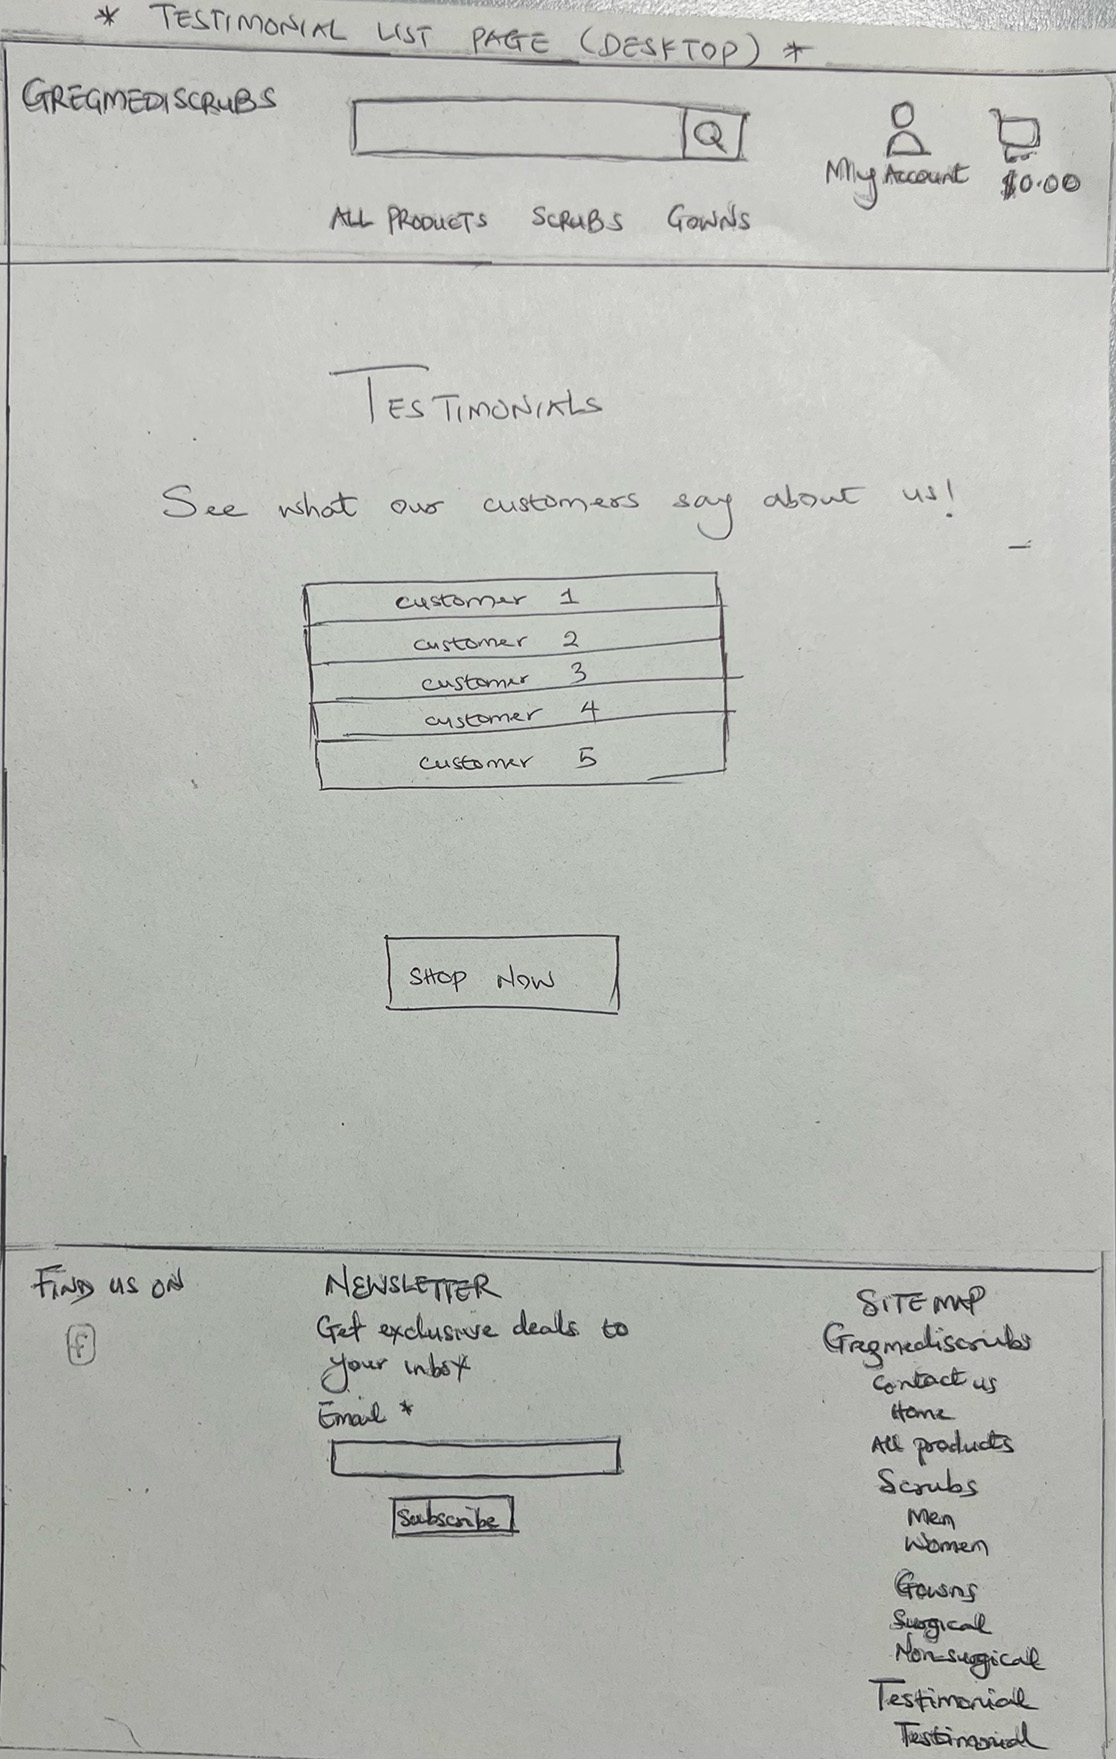 * TESTIMONIAL LIST PAGE (DESKTOP) *
GREGMEDISCRUBS
My Account
$0.00
ALL PRODUCTS SCRUBS GOWNS
TESTIMONIALS
See what our customers say about us!
customer 1
customer 2
customer 3
customer 4
customer 5
SHOP NOW
FIND US ON
f
NEWSLETTER
Get exclusive deals to
your inbox
Email *
Subscribe
SITEMAP
Gregmediscrubs
Contact us
Home
All products
Scrubs
Men
Women
Gowns
Surgical
Non-surgical
Testimonial
Testimonial